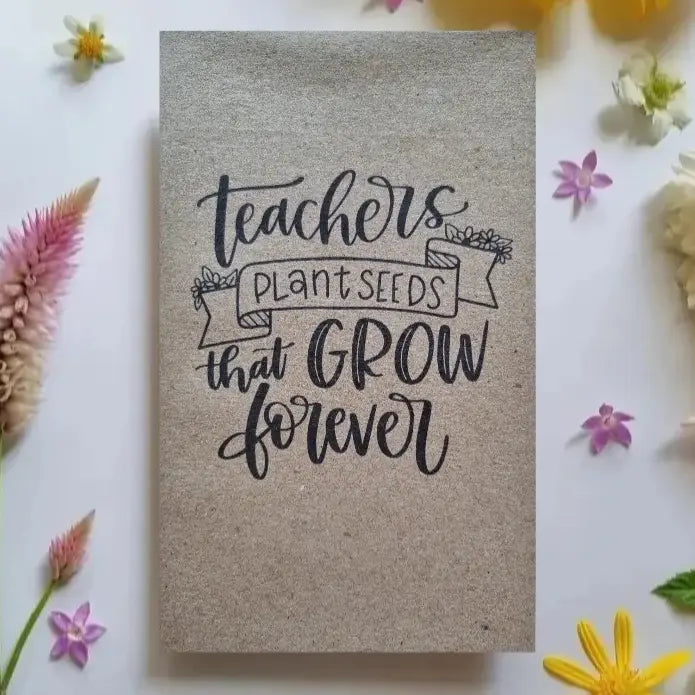 teachers
PLantSEEDS
that GROW
forever